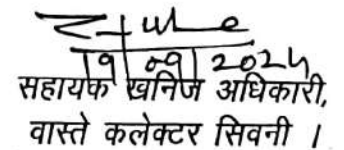 19/09/2024
सहायक खनिज अधिकारी,
वास्ते कलेक्टर सिवनी ।